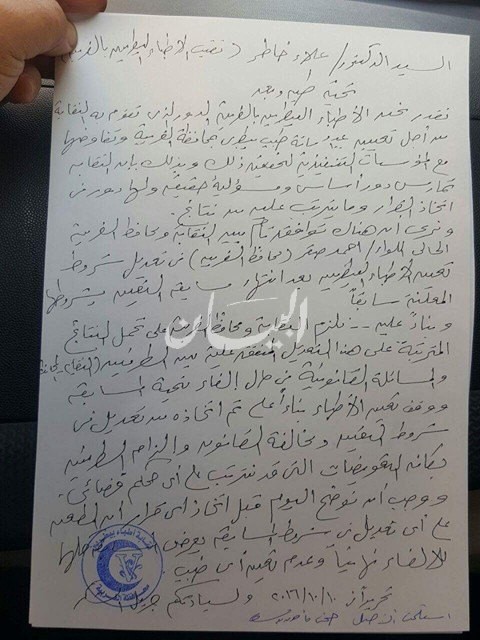 السيد الدكتور/ علاء خاطر (نقيب الأطباء البيطريين بالغربية
تحية طيبة وبعد
نقدر نحن الأطباء البيطريين بالغربية الدور الذى تقوم به النقابة
من أجل تعيين مائة طبيب بيطرى بمحافظة الغربية وتفاوضها
مع المؤسسات التنفيذية لتحقيق ذلك وبذلك بأن النقابة
تمارس دور أساسى ومسؤلية حقيقية ولها دور فى
اتخاذ القرار وما يترتب عليه من نتائج.
ونرى أن هناك توافقد تام بين النقابة ومحافظ الغربية
الحالى اللواء/ أحمد صقر (محافظ الغربية) فى تعديل شروط
تعيين الأطباء البيطريين بعد انتهاء مسابقة التعيين بشروطها
المعلنة سابقاً
وبناءً عليه --- نلزم النقابة ومحافظ الغربية على تحمل النتائج
المترتبة على هذا التعديل المتفق عليه بين الطرفين
والمسائلة القانونية فى حال إلغاء نتيجة المسابقة
ووقف تعيين الأطباء بناءً على تم اتخاذه من تعديل فى
شروط التعيين ومخالفة القانون وإلزام الطرفين
بكافة التعويضات التى قد تترتب على أى حكم قضائى.
ووجب أن نوضح اليوم قبل اتخاذ أى قرار أن الطعن
على أى تعديل فى شروط المسابقة يعرض
للإلغاء نهائياً وعدم تعيين أى طبيب
تحريراً فى ١٠/١٠/٢٠١٦ ولسيادتكم جزيل
البيان